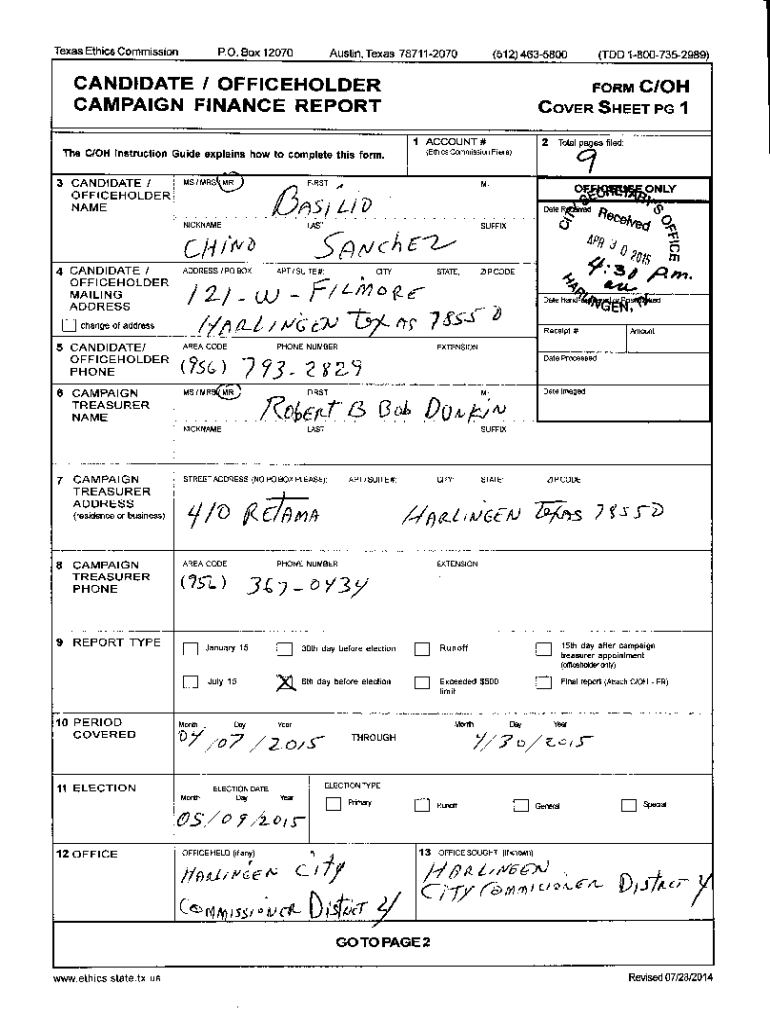 Texas Ethics Commission P.O. Box 12070 Austin, Texas 78711-2070 (512) 463-5800 (TDD 1-800-735-2989)
CANDIDATE / OFFICEHOLDER
CAMPAIGN FINANCE REPORT
FORM C/OH
COVER SHEET PG 1
The C/OH Instruction Guide explains how to complete this form.
1 ACCOUNT #
(Ethics Commission Filers)
2 Total pages filed:
9
3 CANDIDATE / OFFICEHOLDER NAME
MS / MRS / MR FIRST MI
BASILIO
NICKNAME LAST SUFFIX
CHINO SANCHEZ
OFFICE USE ONLY
Date Received
CITY SECRETARY'S OFFICE
Received
APR 30 2015
4:30 p.m.
HARLINGEN, TX
Date Hand-delivered or Postmarked
Receipt # Amount
Date Processed
Date Imaged
4 CANDIDATE / OFFICEHOLDER MAILING ADDRESS
change of address
ADDRESS / PO BOX APT / SUITE #: CITY STATE, ZIP CODE
121-W-FILMORE
HARLINGEN TEXAS 78550
5 CANDIDATE/ OFFICEHOLDER PHONE
AREA CODE PHONE NUMBER EXTENSION
(956) 793-2829
6 CAMPAIGN TREASURER NAME
MS / MRS / MR FIRST MI
ROBERT B Bob DUNKIN
NICKNAME LAST SUFFIX
7 CAMPAIGN TREASURER ADDRESS
(residence or business)
STREET ADDRESS (NO PO BOX PLEASE); APT / SUITE #: CITY: STATE: ZIP CODE
410 RETAMA HARLINGEN TEXAS 78550
8 CAMPAIGN TREASURER PHONE
AREA CODE PHONE NUMBER EXTENSION
(956) 367-0434
9 REPORT TYPE
January 15 30th day before election Runoff 15th day after campaign treasurer appointment (officeholder only)
July 15 X 8th day before election Exceeded $500 limit Final report (Attach C/OH - FR)
10 PERIOD COVERED
Month Day Year Month Day Year
04/07/2015 THROUGH 4/30/2015
11 ELECTION
ELECTION DATE
Month Day Year
05/09/2015
ELECTION TYPE
Primary Runoff General Special
12 OFFICE
OFFICE HELD (if any)
HARLINGEN CITY
COMMISSIONER DISTRICT 4
13 OFFICE SOUGHT (if known)
HARLINGEN
CITY COMMICIONER DISTRICT 4
GO TO PAGE 2
www.ethics.state.tx.us Revised 07/28/2014